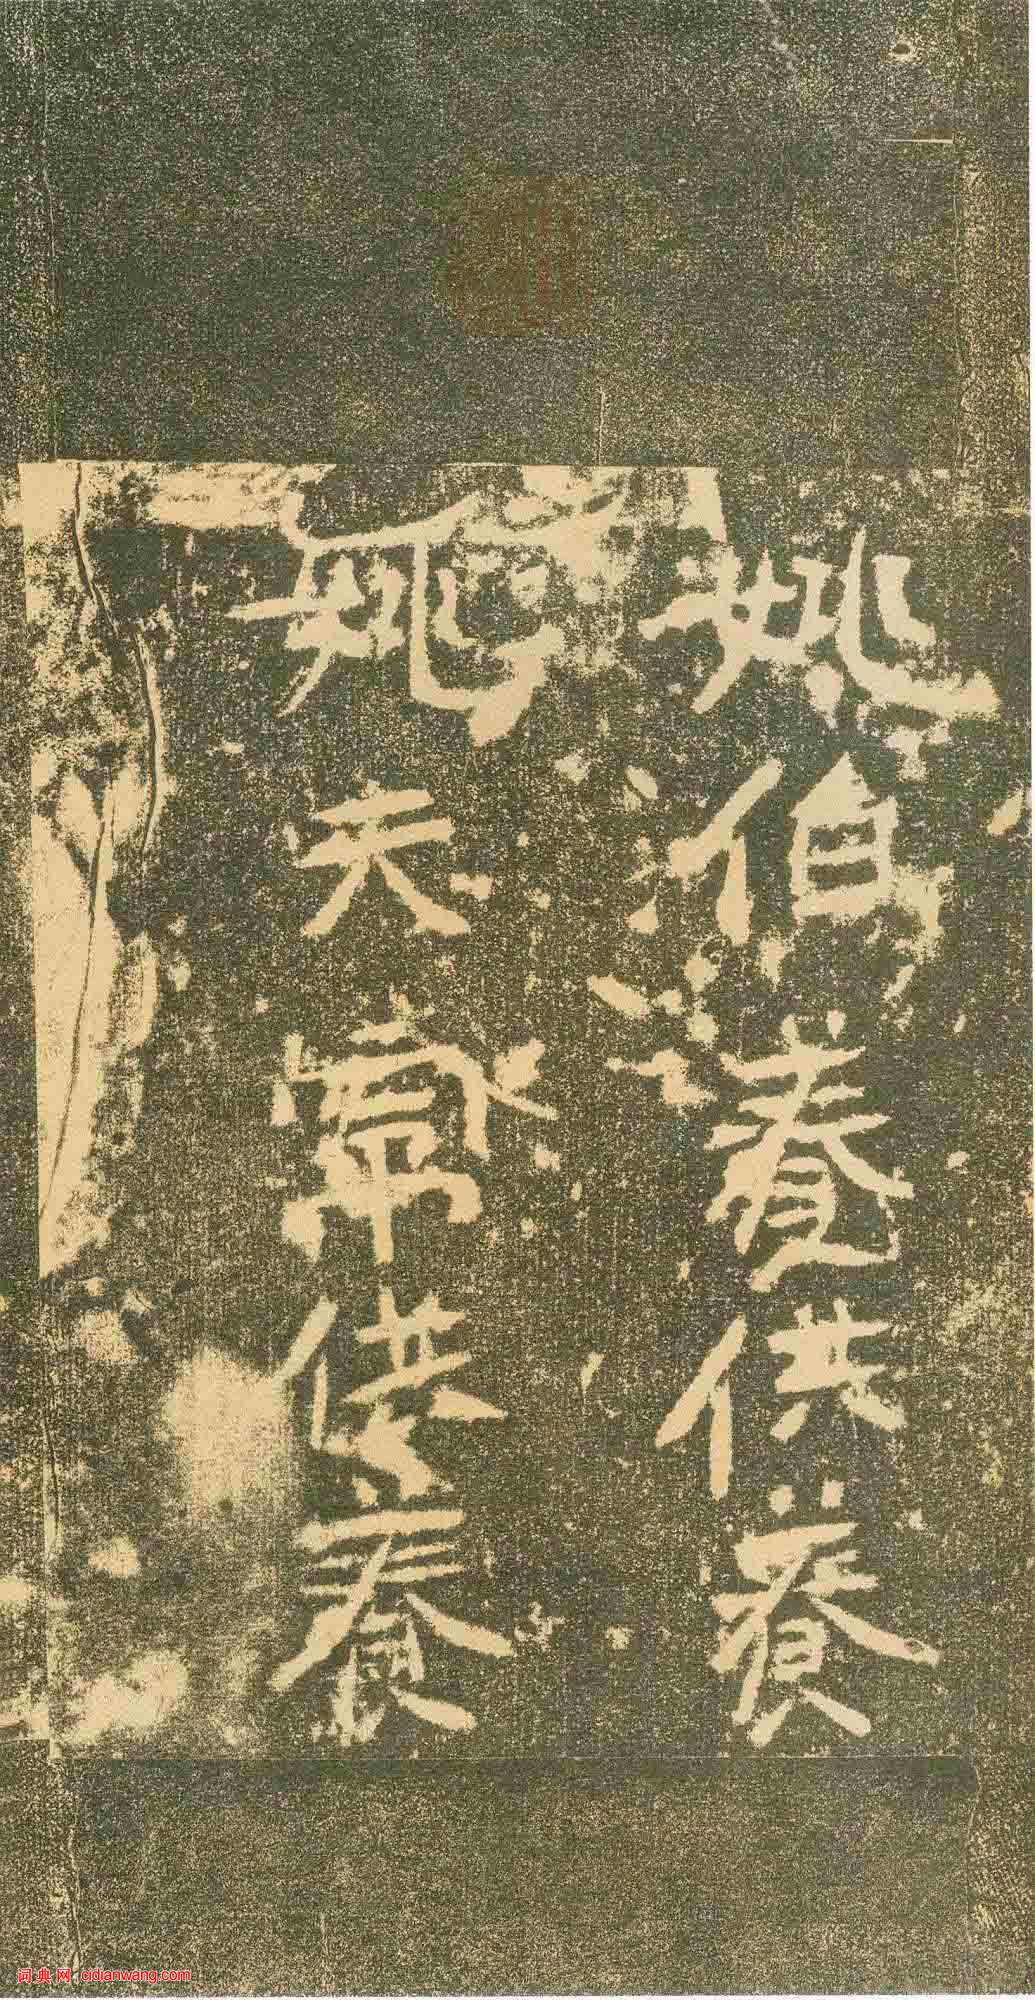 姚伯養供養
姚天常供養
词典网 cidianwang.com